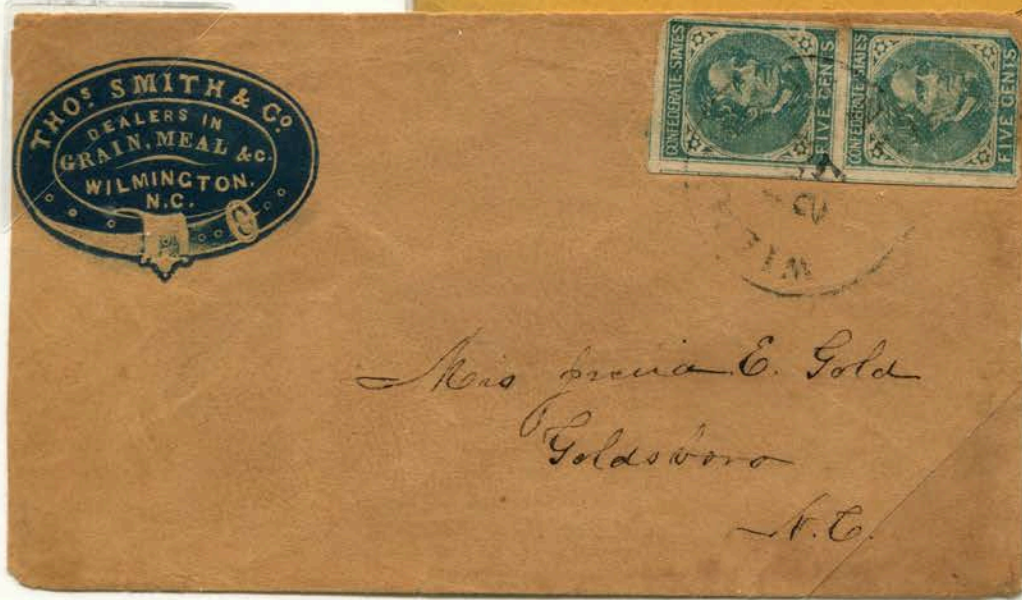 THOS SMITH & Co
DEALERS IN
GRAIN, MEAL &C.
WILMINGTON,
N.C.
CONFEDERATE STATES
FIVE CENTS
CONFEDERATE STATES
FIVE CENTS
WIL
E. Gold
Goldsboro
N.C.